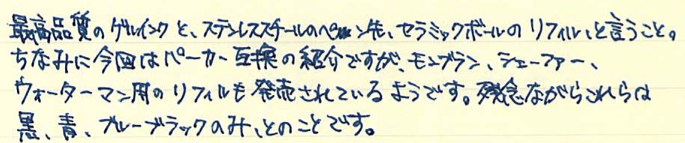 最高品質のゲルインクと、ステンレススチールのペン先、セラミックボールのリフィル、と言うこと。
ちなみに今回はパーカー互換の紹介ですが、モンブラン、シェーファー、
ウォーターマン用のリフィルも発売されているようです。残念ながらこれらは
黒、青、ブルーブラックのみ、とのことです。